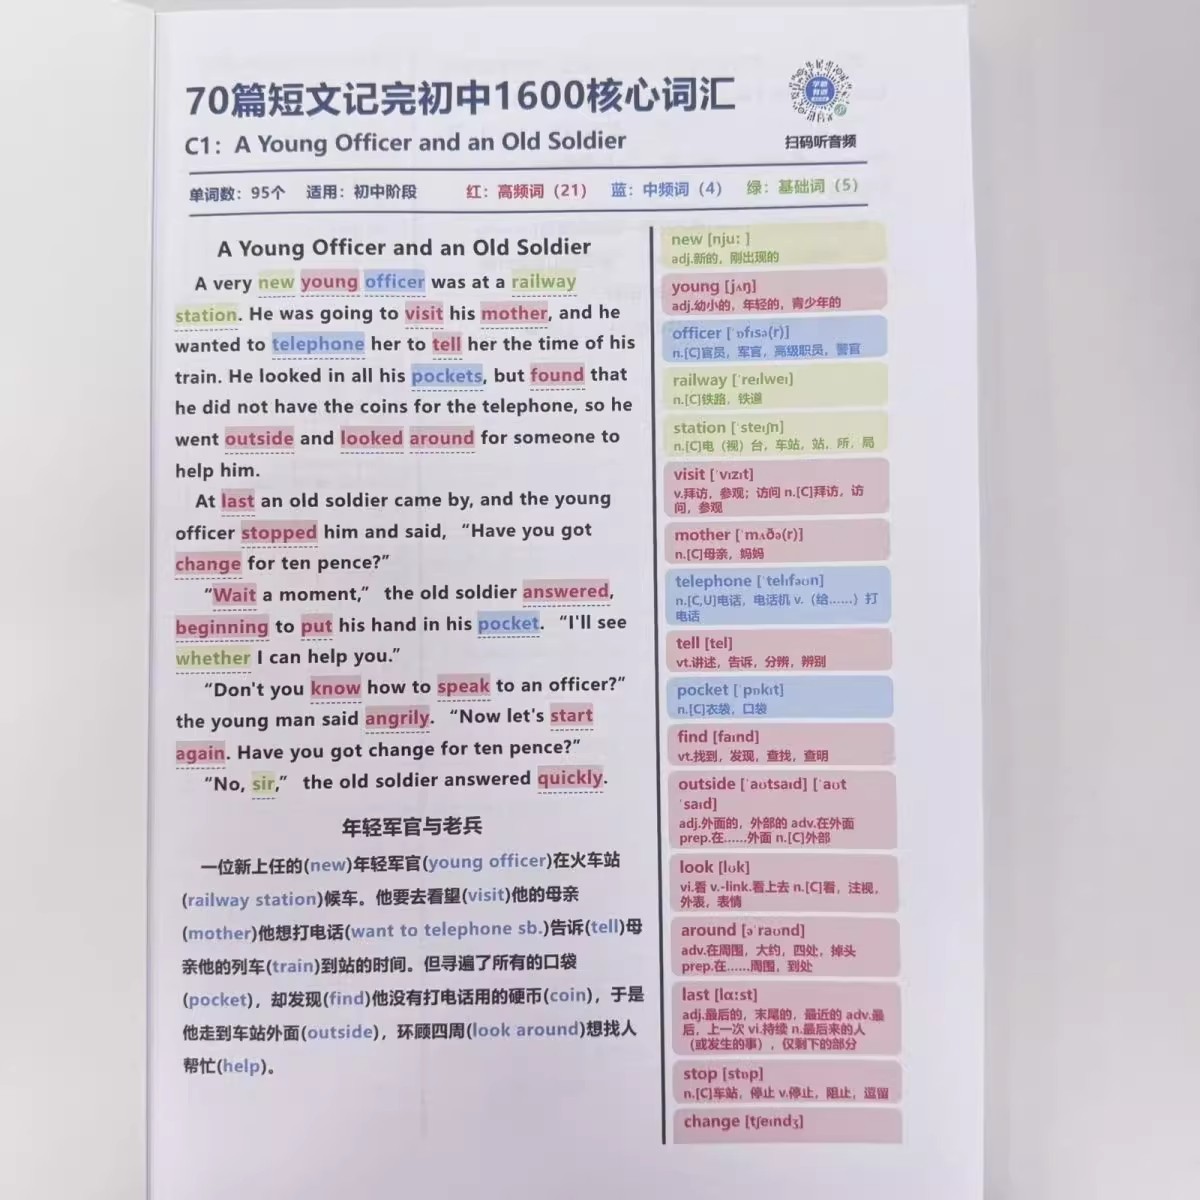 70篇短文记完初中1600核心词汇
C1：A Young Officer and an Old Soldier
扫码听音频
单词数：95个 适用：初中阶段 红：高频词（21） 蓝：中频词（4） 绿：基础词（5）
A Young Officer and an Old Soldier
A very new young officer was at a railway
station. He was going to visit his mother, and he
wanted to telephone her to tell her the time of his
train. He looked in all his pockets, but found that
he did not have the coins for the telephone, so he
went outside and looked around for someone to
help him.
At last an old soldier came by, and the young
officer stopped him and said, “Have you got
change for ten pence?”
“Wait a moment,” the old soldier answered,
beginning to put his hand in his pocket. “I'll see
whether I can help you.”
“Don't you know how to speak to an officer?”
the young man said angrily. “Now let's start
again. Have you got change for ten pence?”
“No, sir,” the old soldier answered quickly.
年轻军官与老兵
一位新上任的(new)年轻军官(young officer)在火车站
(railway station)候车。他要去看望(visit)他的母亲
(mother)他想打电话(want to telephone sb.)告诉(tell)母
亲他的列车(train)到站的时间。但寻遍了所有的口袋
(pocket)，却发现(find)他没有打电话用的硬币(coin)，于是
他走到车站外面(outside)，环顾四周(look around)想找人
帮忙(help)。
new [njuː ]
adj.新的，刚出现的
young [jʌŋ]
adj.幼小的，年轻的，青少年的
officer [ˈɒfɪsə(r)]
n.[C]官员，军官，高级职员，警官
railway [ˈreɪlweɪ]
n.[C]铁路，铁道
station [ˈsteɪʃn]
n.[C]电（视）台，车站，站，所，局
visit [ˈvɪzɪt]
v.拜访，参观；访问 n.[C]拜访，访
问，参观
mother [ˈmʌðə(r)]
n.[C]母亲，妈妈
telephone [ˈtelɪfəʊn]
n.[C,U]电话，电话机 v.（给……）打
电话
tell [tel]
vt.讲述，告诉，分辨，辨别
pocket [ˈpɒkɪt]
n.[C]衣袋，口袋
find [faɪnd]
vt.找到，发现，查找，查明
outside [ˈaʊtsaɪd] [ˈaʊt
ˈsaɪd]
adj.外面的，外部的 adv.在外面
prep.在……外面 n.[C]外部
look [lʊk]
vi.看 v.-link.看上去 n.[C]看，注视，
外表，表情
around [əˈraʊnd]
adv.在周围，大约，四处，掉头
prep.在……周围，到处
last [lɑːst]
adj.最后的，末尾的，最近的 adv.最
后，上一次 vi.持续 n.最后来的人
（或发生的事），仅剩下的部分
stop [stɒp]
n.[C]车站，停止 v.停止，阻止，逗留
change [tʃeɪndʒ]